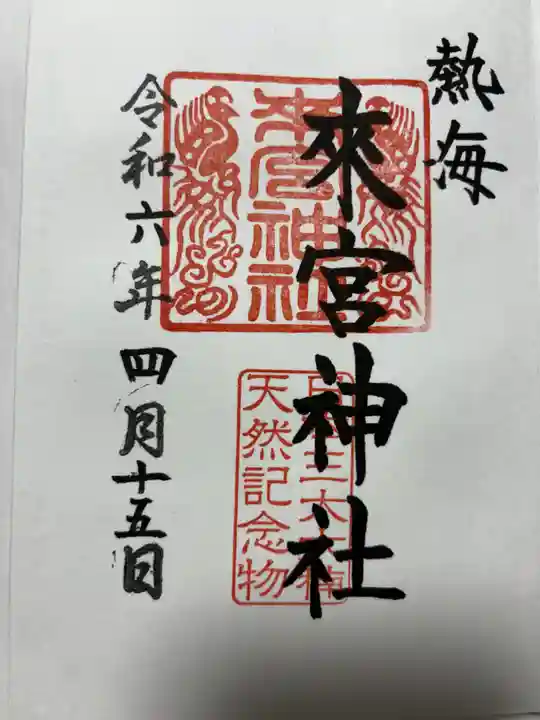 熱海
來宮神社
來宮神社
天然記念物
令和六年四月十五日